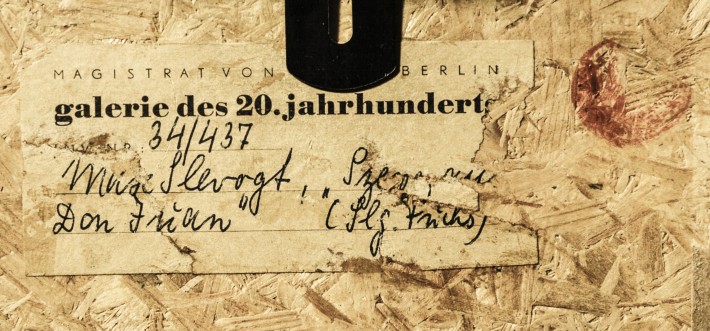 MAGISTRAT VON BERLIN
galerie des 20. jahrhunderts
INV. NR. 34/437
Max Slevogt, „Szene
Don Juan" (Slg. Fuchs)